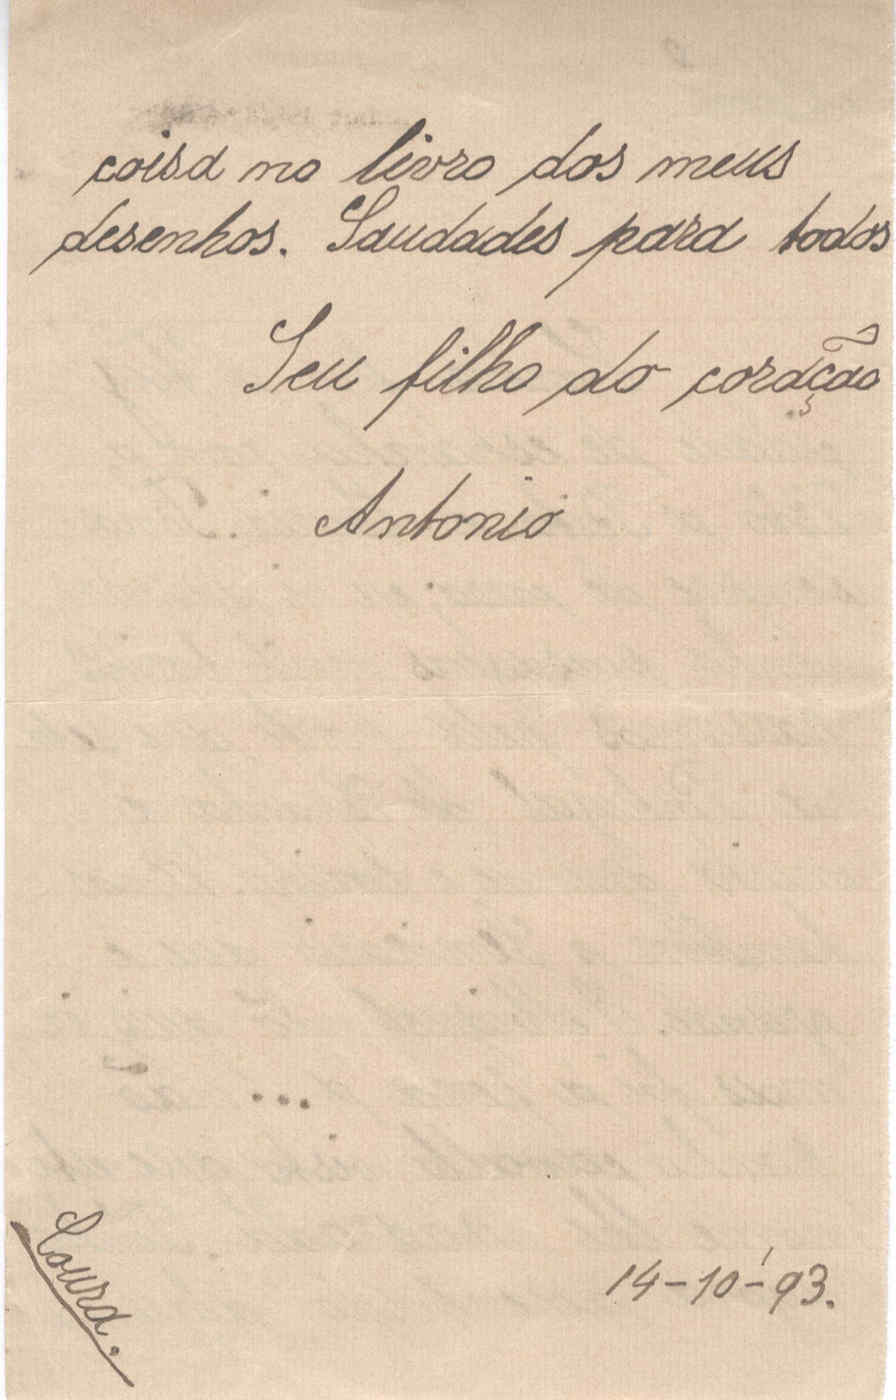 coisa no livro dos meus
desenhos. Saudades para todos
Seu filho do coração
Antonio
Coura.
14-10-93.